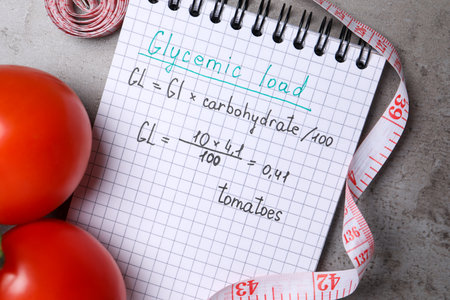 Glycemic load
GL = GI × carbohydrate/100
GL = 10 × 4,1 / 100 = 0,41
tomatoes
39
32
31
42
43